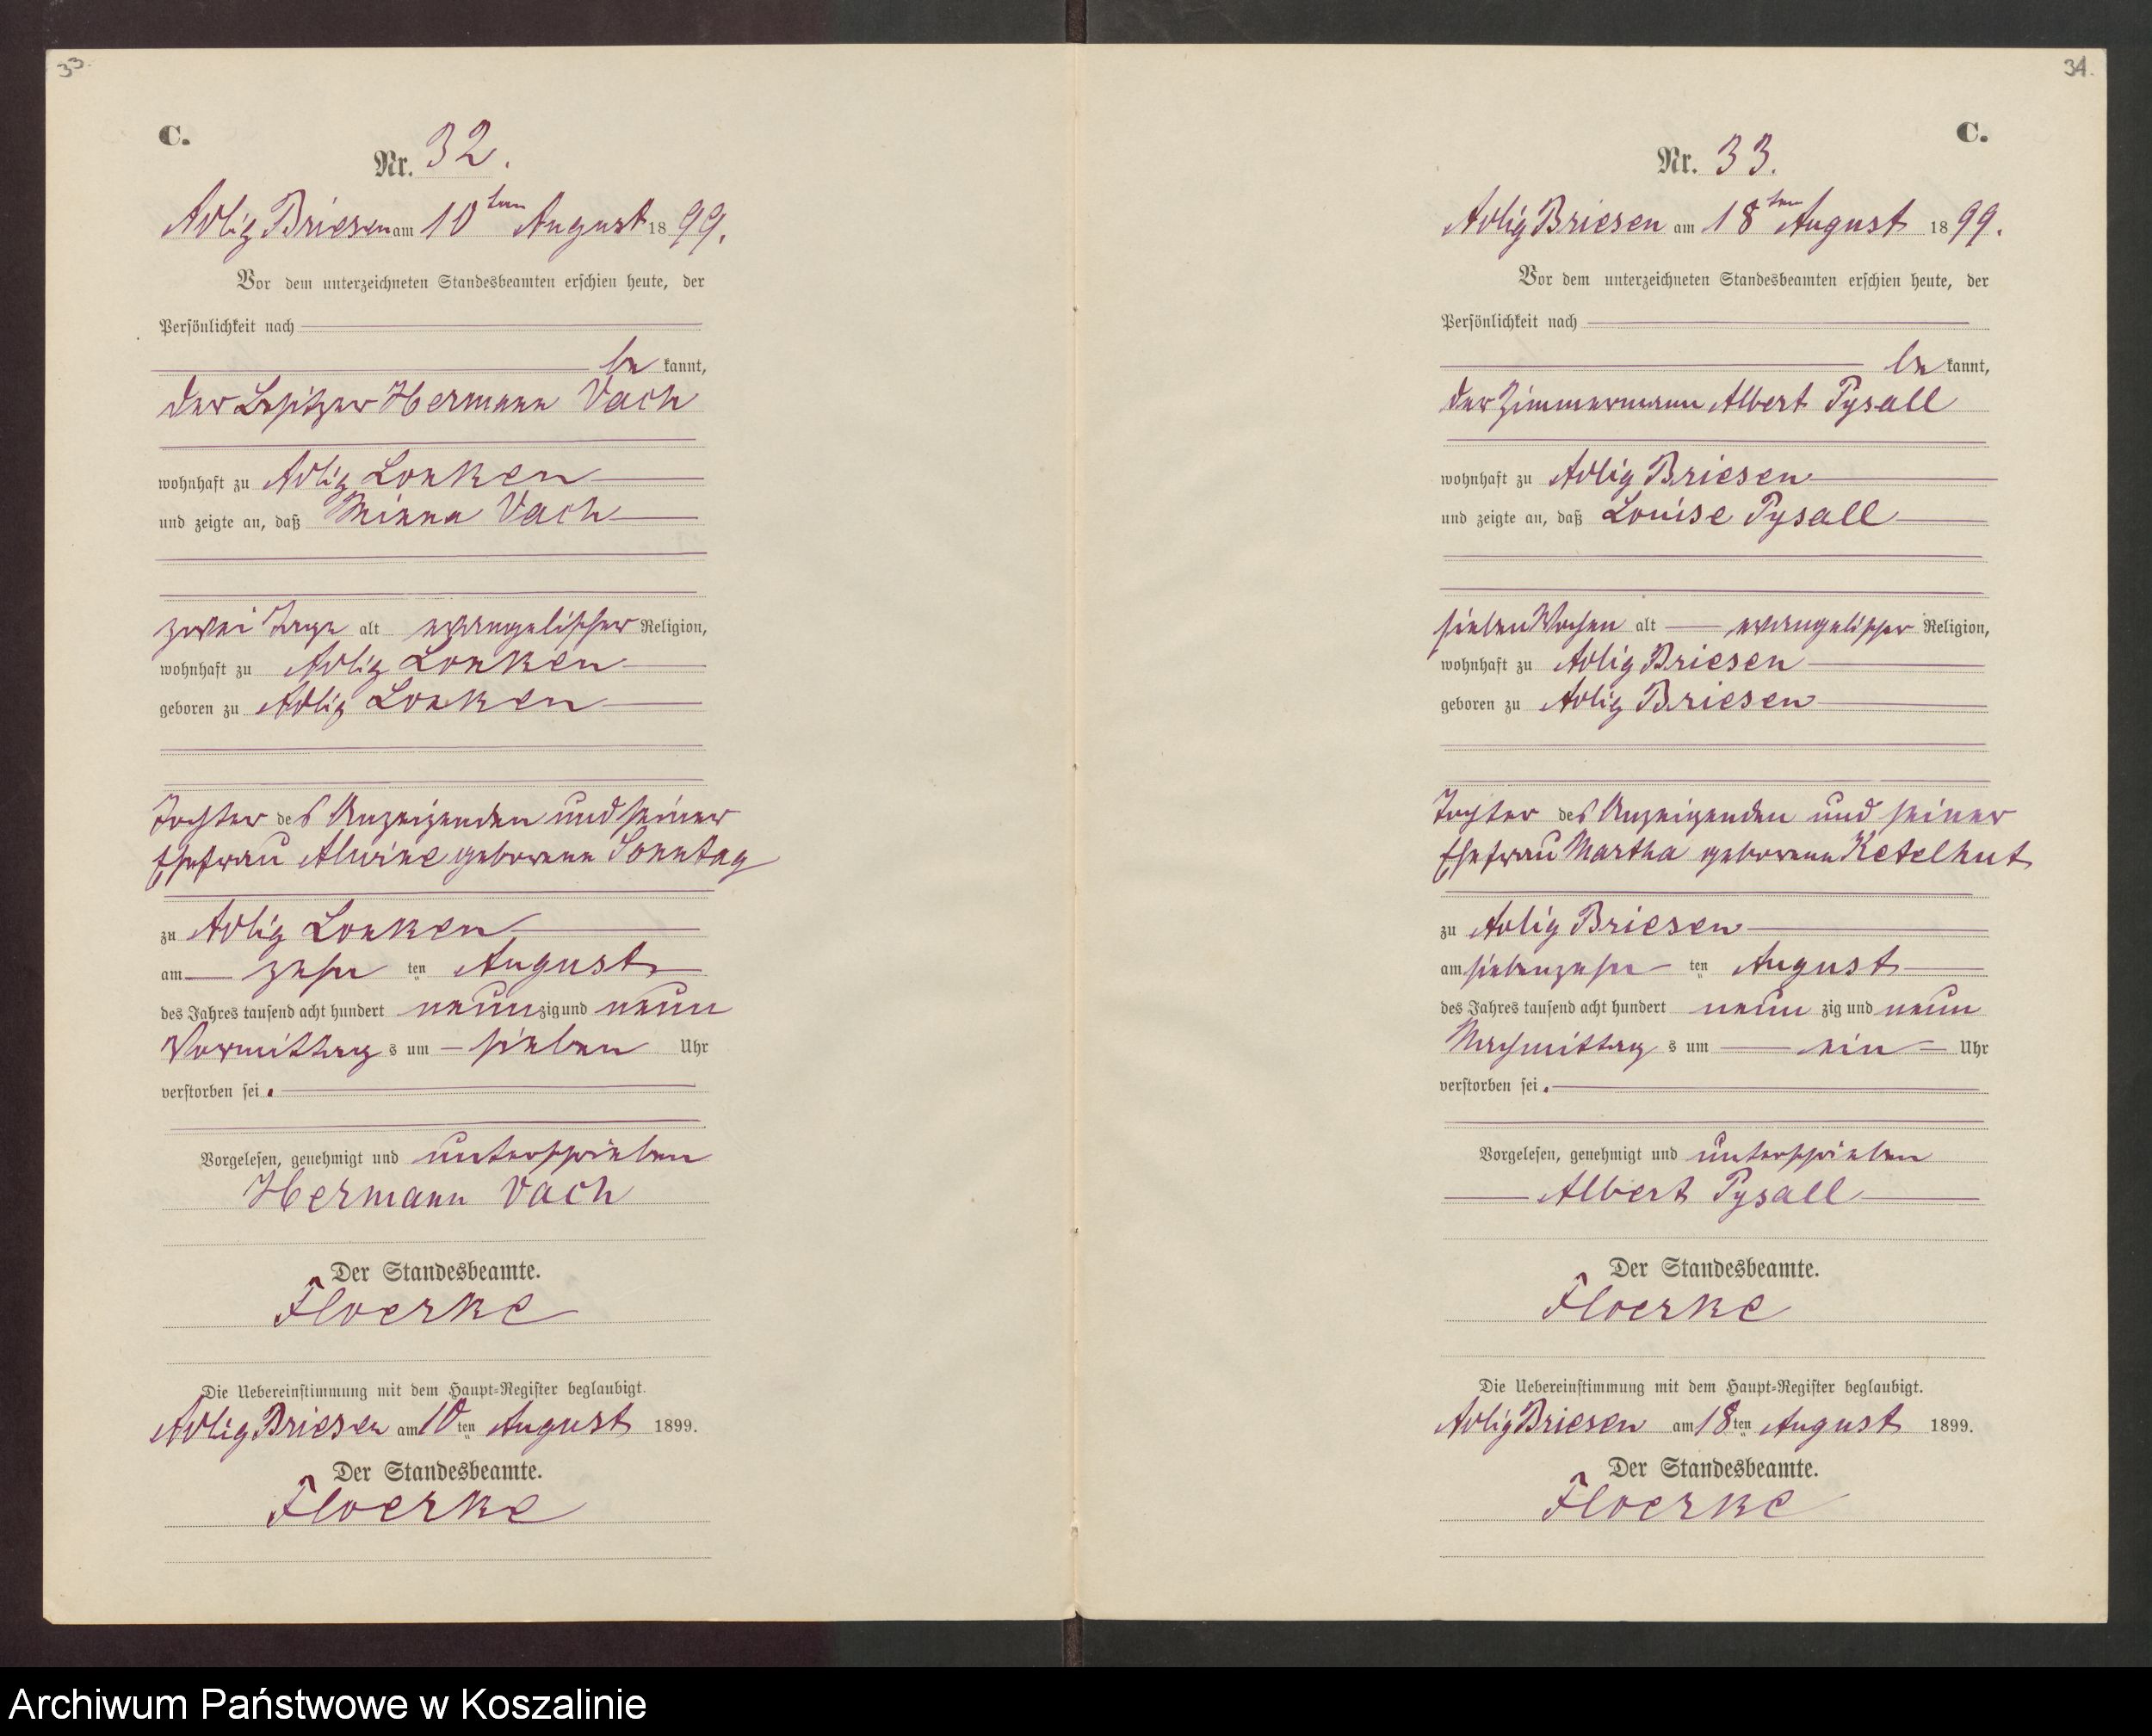 33.
C.
Nr. 32.
Adlig Briesen am 10ten August 1899.
Vor dem unterzeichneten Standesbeamten erschien heute, der
Persönlichkeit nach
bekannt,
der Besitzer Hermann Vach
wohnhaft zu Adlig Lonken
und zeigte an, daß Minna Vach
zwei Tage alt evangelischer Religion,
wohnhaft zu Adlig Lonken
geboren zu Adlig Lonken
Tochter des Anzeigenden und seiner
Ehefrau Alwine geborenen Sonntag
zu Adlig Lonken
am zehnten August
des Jahres tausend acht hundert neunzig und neun
Vormittags um sieben Uhr
verstorben sei.
Vorgelesen, genehmigt und unterschrieben
Hermann Vach
Der Standesbeamte.
Floerke
Die Uebereinstimmung mit dem Haupt-Register beglaubigt.
Adlig Briesen am 10ten August 1899.
Der Standesbeamte.
Floerke
34.
C.
Nr. 33.
Adlig Briesen am 18ten August 1899.
Vor dem unterzeichneten Standesbeamten erschien heute, der
Persönlichkeit nach
bekannt,
der Zimmermann Albert Pysall
wohnhaft zu Adlig Briesen
und zeigte an, daß Louise Pysall
sieben Wochen alt evangelischer Religion,
wohnhaft zu Adlig Briesen
geboren zu Adlig Briesen
Tochter des Anzeigenden und seiner
Ehefrau Martha geborenen Ketelhut
zu Adlig Briesen
am siebenzehnten August
des Jahres tausend acht hundert neunzig und neun
Nachmittags um ein Uhr
verstorben sei.
Vorgelesen, genehmigt und unterschrieben
Albert Pysall
Der Standesbeamte.
Floerke
Die Uebereinstimmung mit dem Haupt-Register beglaubigt.
Adlig Briesen am 18ten August 1899.
Der Standesbeamte.
Floerke
Archiwum Państwowe w Koszalinie